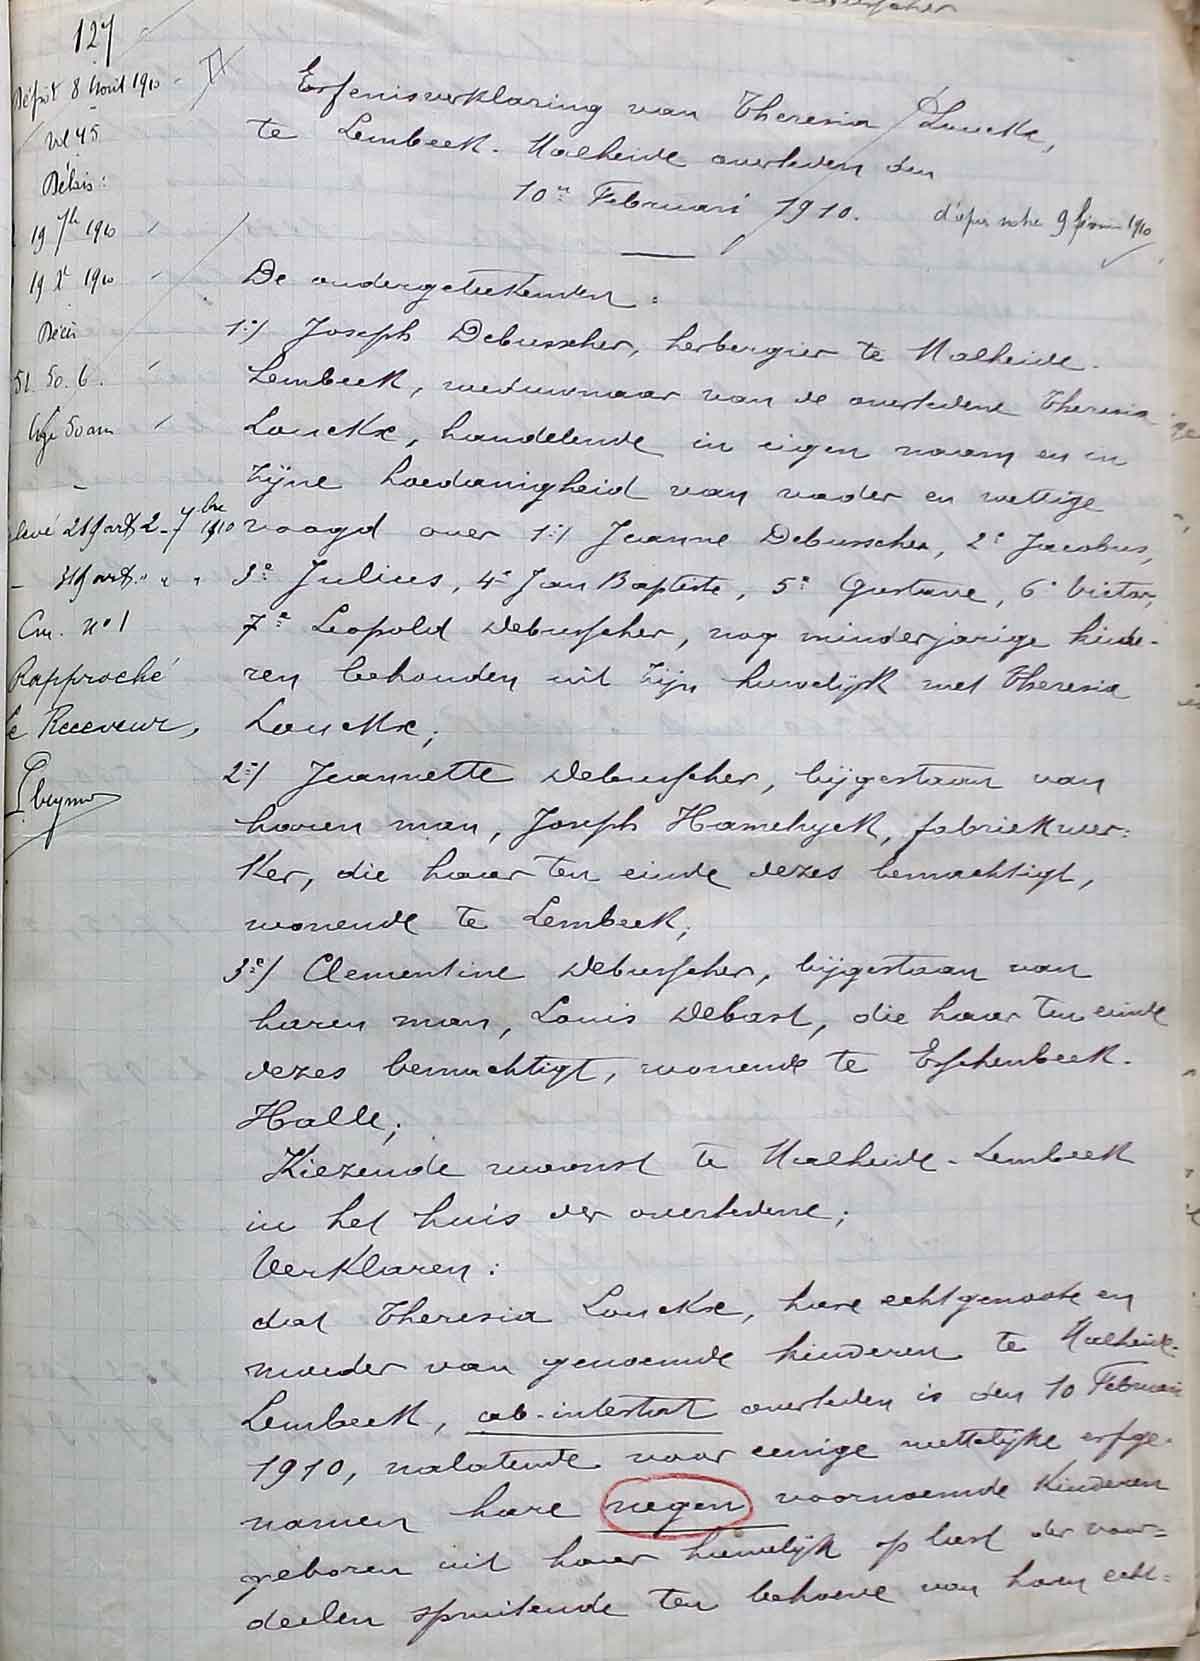 127
Dépôt 8 Avril 1910
vol 45
Délais :
19 7bre 1910
19 Xe 1910
Décès
51. 50. 6.
50 am
21 9 art 2 - 7bre 1910
Cm. n° 1
Rapproché
Le Receveur,
Erfenisverklaring van Theresia Louckx,
te Lembeek - Malheide overleden den
10en Februari 1910.
9 février 1910
De ondergeteekenden :
1°/ Joseph Debusscher, herbergier te Malheide-
Lembeek, weduwnaar van de overledene Theresia
Louckx, handelende in eigen naam en in
zijne hoedanigheid van vader en wettige
voogd over 1°/ Jeanne Debusscher, 2° Jacobus,
3° Julius, 4° Jan Baptiste, 5° Gustave, 6° Victor,
7° Leopold Debusscher, nog minderjarige kinde-
ren behouden uit zijn huwelijk met Theresia
Louckx;
2°/ Jeannette Debusscher, bijgestaan van
haren man, Joseph Hamelryck, fabriekwer-
ker, die haar ten einde dezes bemachtigt,
wonende te Lembeek;
3°/ Clementine Debusscher, bijgestaan van
haren man, Louis Debast, die haar ten einde
dezes bemachtigt, wonende te Esschenbeek-
Halle;
Kiezende woonst te Malheide-Lembeek
in het huis der overledene;
Verklaren :
dat Theresia Louckx, hare echtgenoote en
moeder van genoemde kinderen te Malheide-
Lembeek, ab-intestat overleden is den 10 Februari
1910, nalatende voor eenige wettelijke erfge-
namen hare negen voornoemde kinderen
geboren uit haar huwelijk op last der voor-
deelen spruitende ten behoeve van haren echt-